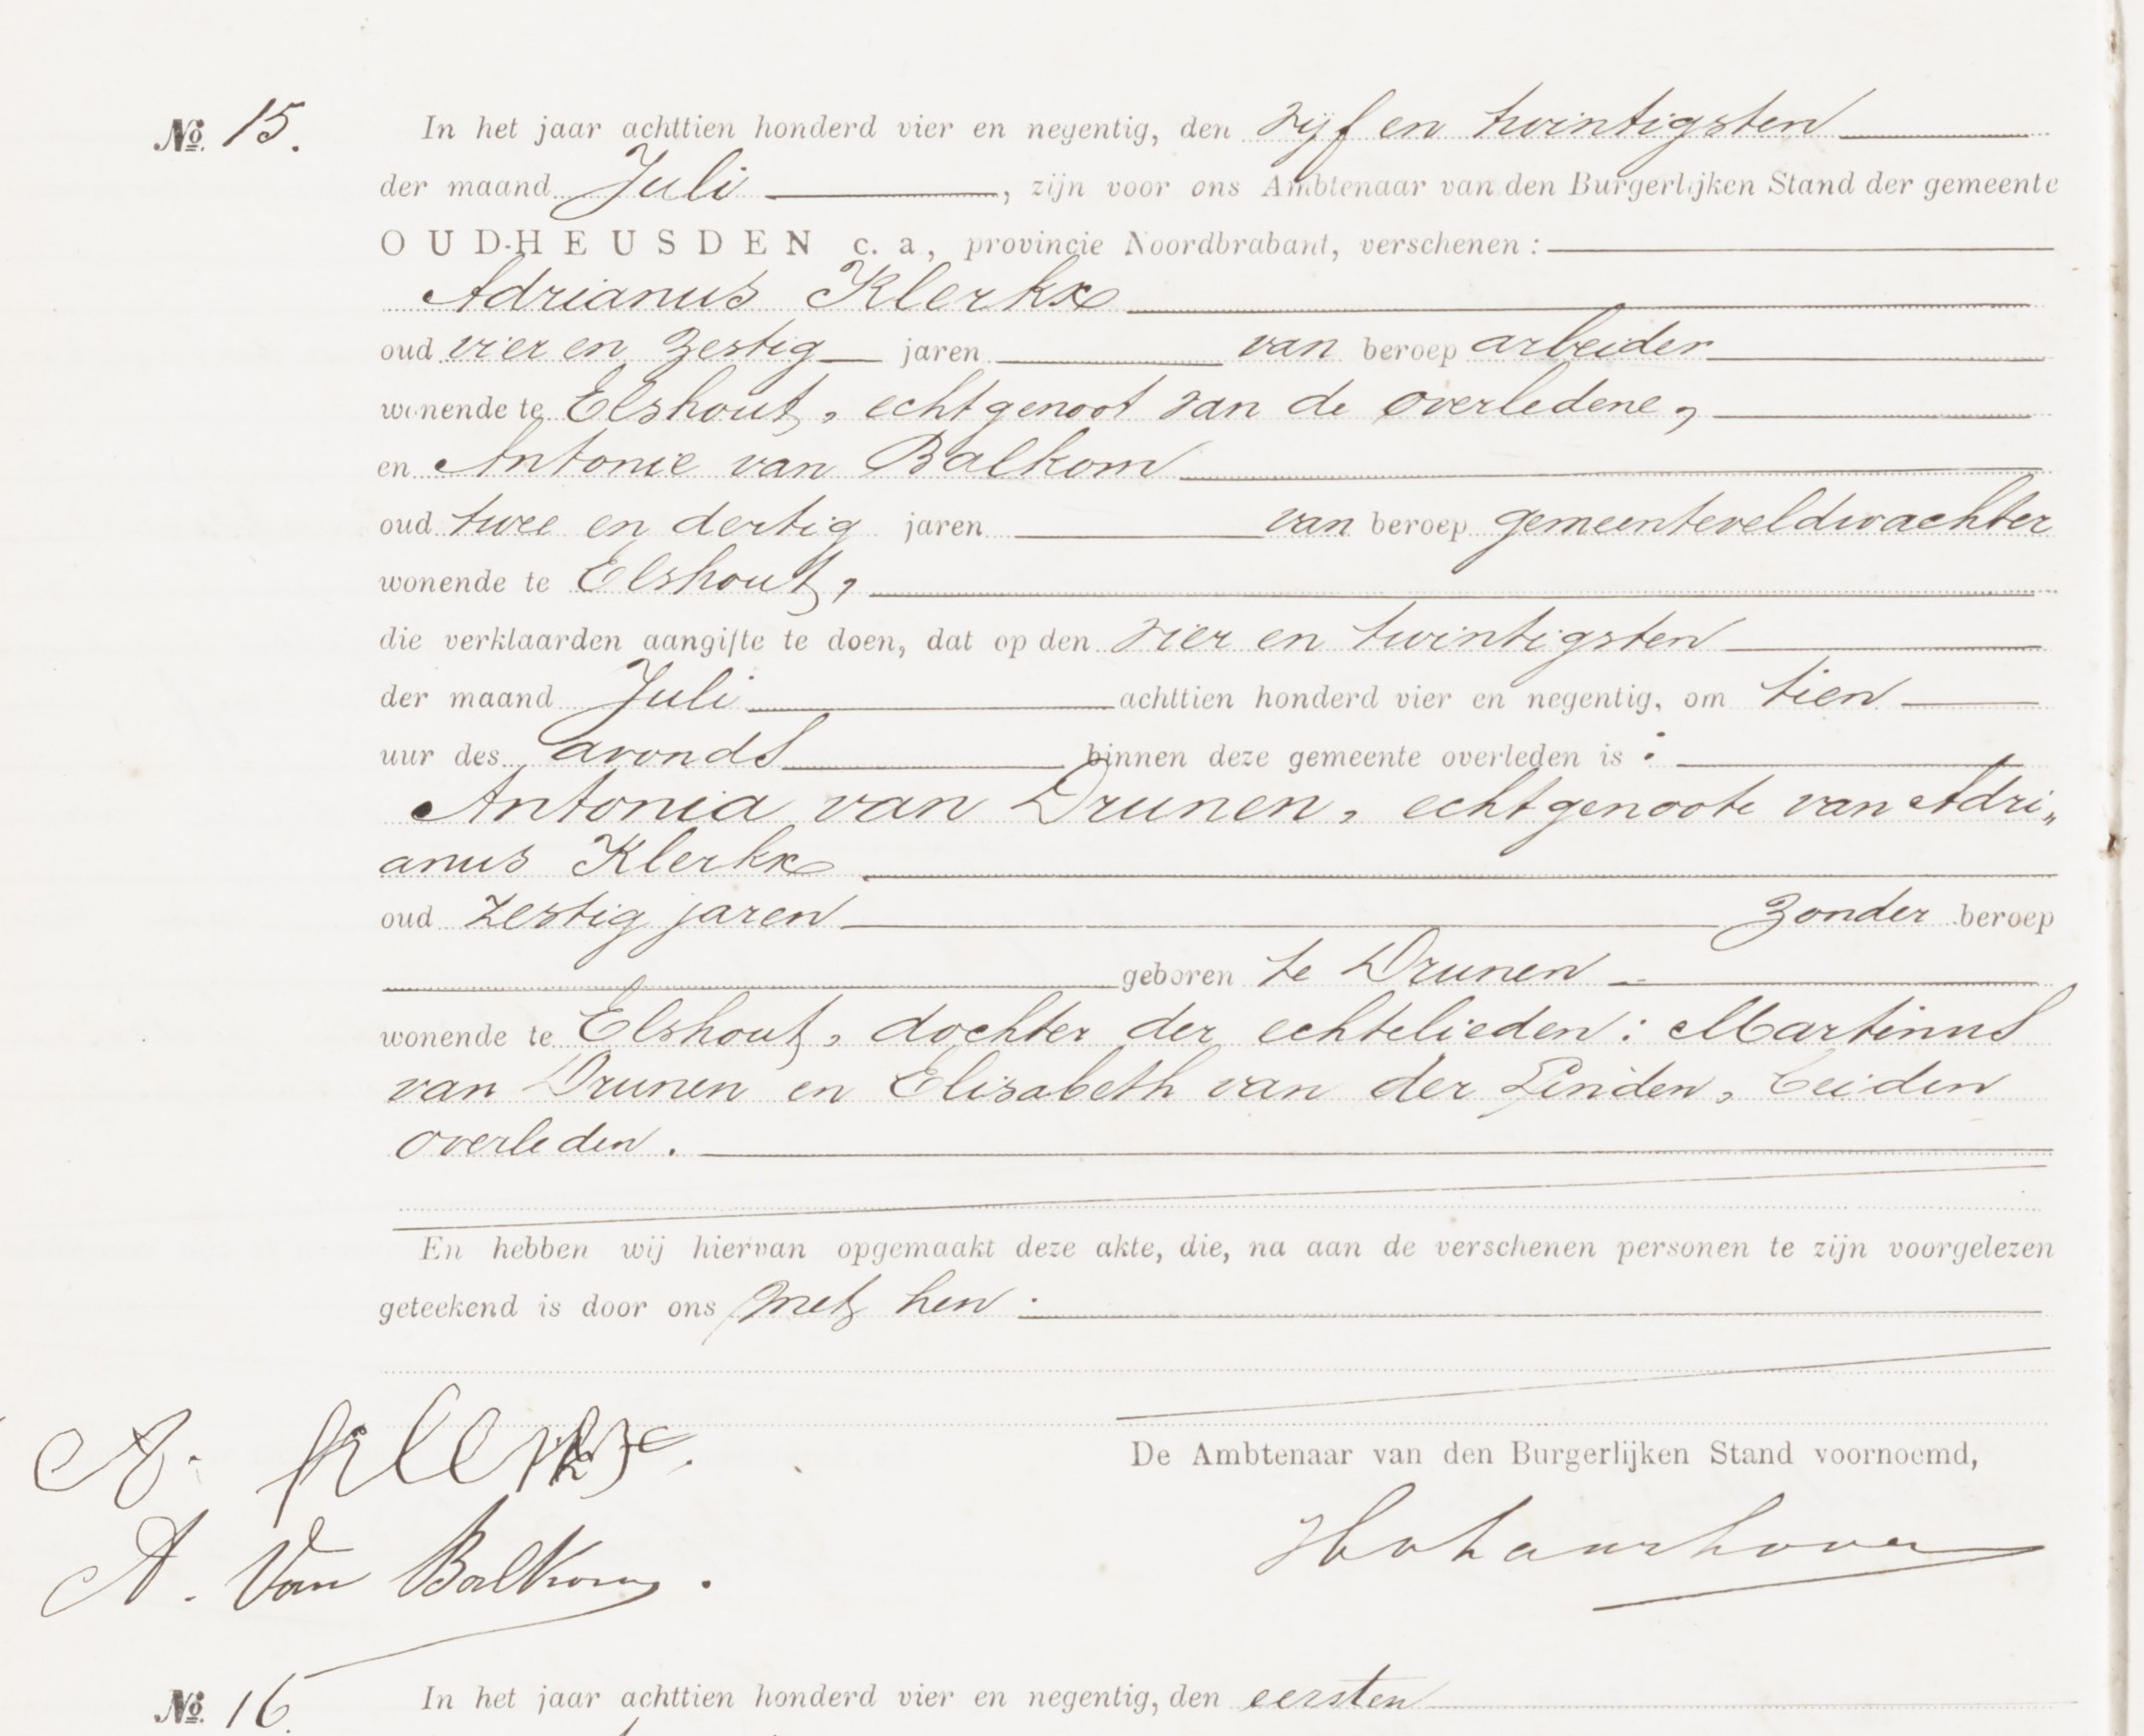 № 15. In het jaar achttien honderd vier en negentig, den vijf en twintigsten
der maand Juli, zijn voor ons Ambtenaar van den Burgerlijken Stand der gemeente
OUD-HEUSDEN c. a., provincie Noordbrabant, verschenen:
Adrianus Klerkx
oud vier en zestig jaren van beroep arbeider
wonende te Elshout, echtgenoot van de overledene,
en Antonie van Balkom
oud twee en dertig jaren van beroep gemeenteveldwachter
wonende te Elshout,
die verklaarden aangifte te doen, dat op den vier en twintigsten
der maand Juli achttien honderd vier en negentig, om tien
uur des avonds binnen deze gemeente overleden is:
Antonia van Drunen, echtgenoote van Adri„
anus Klerkx
oud zestig jaren zonder beroep
geboren te Drunen
wonende te Elshout, dochter der echtelieden: Martinus
van Drunen en Elisabeth van der Linden, beiden
overleden.
En hebben wij hiervan opgemaakt deze akte, die, na aan de verschenen personen te zijn voorgelezen
geteekend is door ons met hen.
A. Klerkx.
De Ambtenaar van den Burgerlijken Stand voornoemd,
A. Van Balkom.
№ 16. In het jaar achttien honderd vier en negentig, den eersten